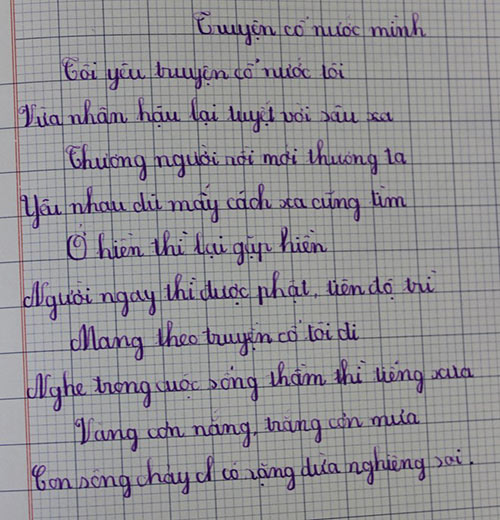 Truyện cổ nước mình
Tôi yêu truyện cổ nước tôi
Vừa nhân hậu lại tuyệt vời sâu xa
Thương người rồi mới thương ta
Yêu nhau dù mấy cách xa cũng tìm
Ở hiền thì lại gặp hiền
Người ngay thì được phật, tiên độ trì
Mang theo truyện cổ tôi đi
Nghe trong cuộc sống thầm thì tiếng xưa
Vàng cơn nắng, trắng cơn mưa
Con sông chảy có rặng dừa nghiêng soi.